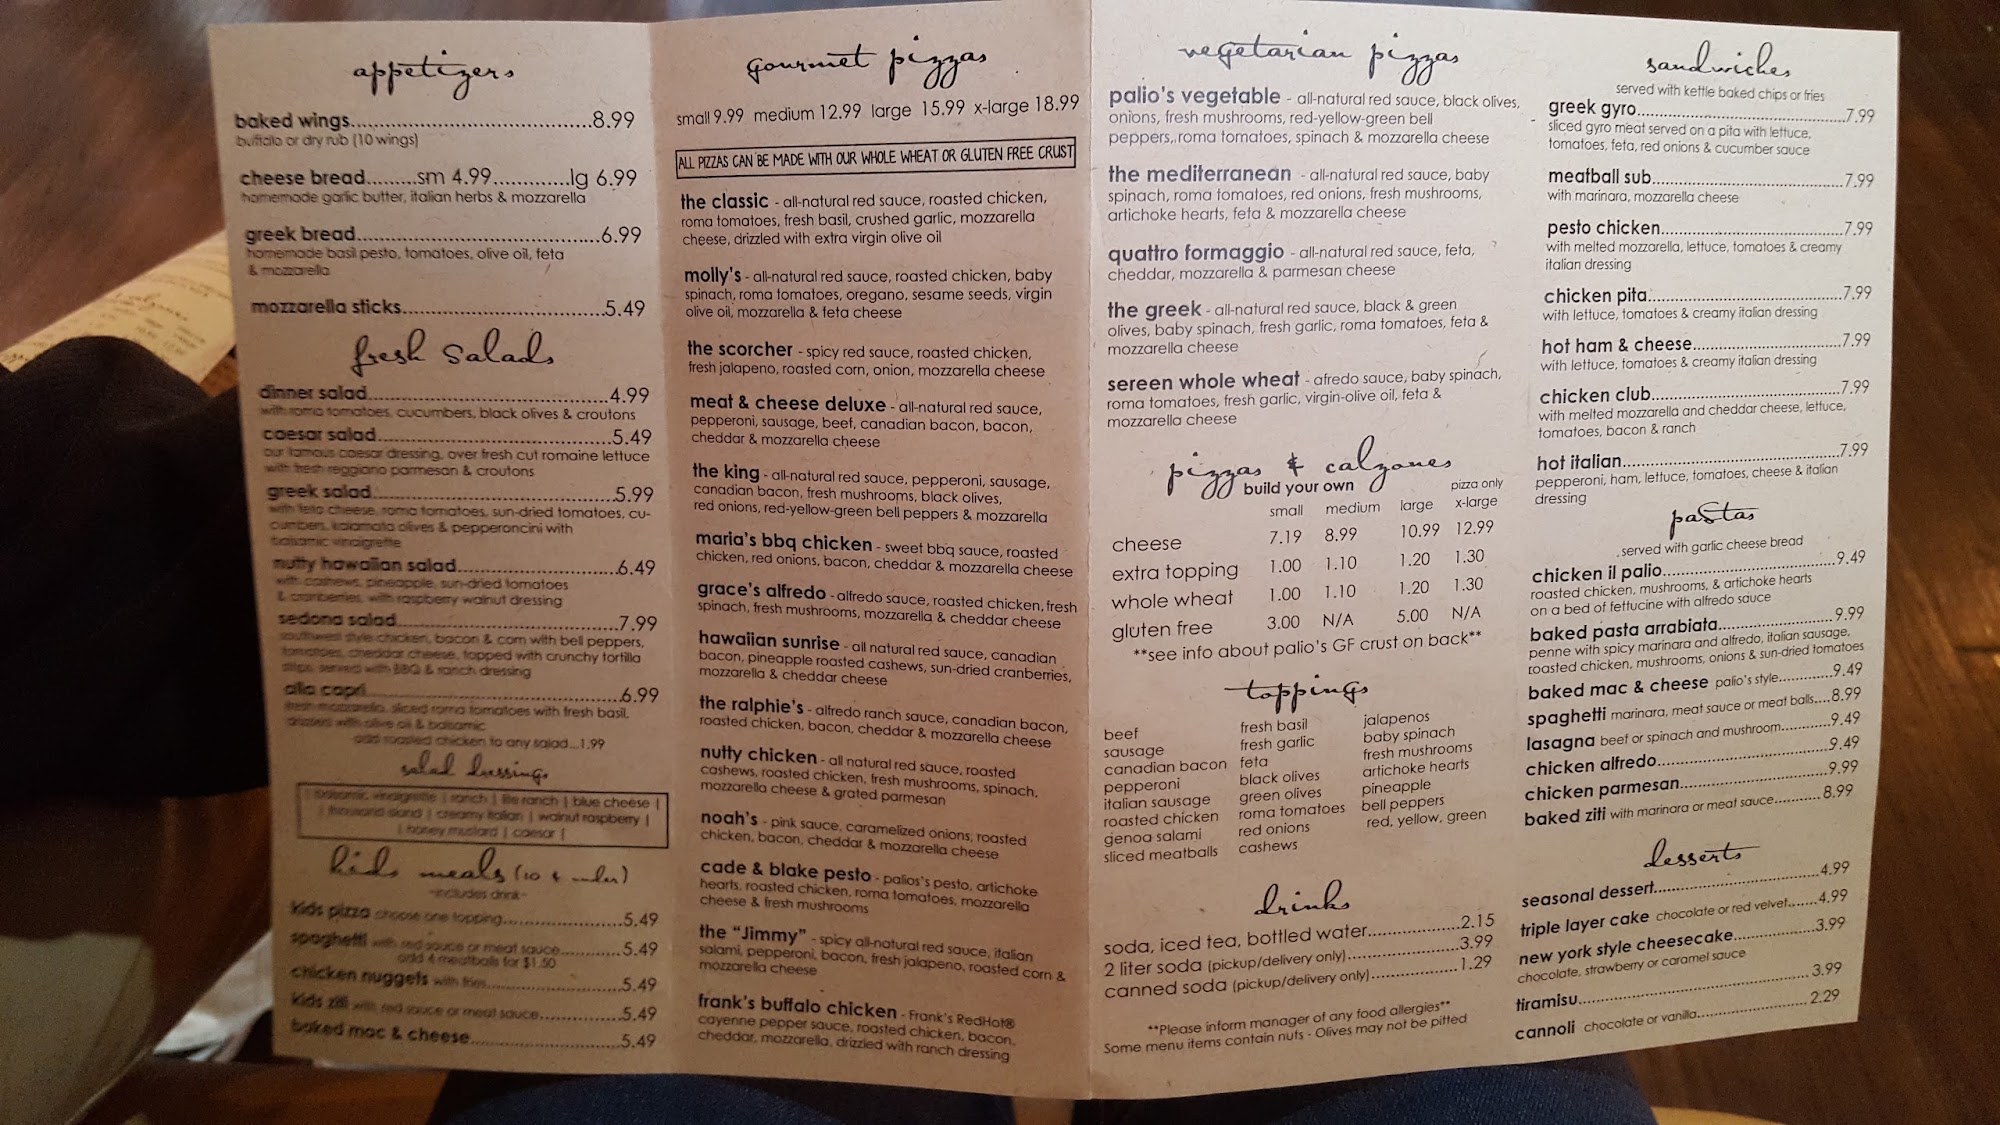 appetizers
baked wings.....8.99
buffalo or dry rub (10 wings)
cheese bread.....sm 4.99.....lg 6.99
homemade garlic butter, italian herbs & mozzarella
greek bread.....6.99
homemade basil pesto, tomatoes, olive oil, feta
& mozzarella
mozzarella sticks.....5.49
fresh salads
dinner salad.....4.99
with roma tomatoes, cucumbers, black olives & croutons
caesar salad.....5.49
our famous caesar dressing, over fresh cut romaine lettuce
with fresh reggiano parmesan & croutons
greek salad.....5.99
with feta cheese, roma tomatoes, sun-dried tomatoes, cu-
cumbers, kalamata olives & pepperoncini with
balsamic vinaigrette
nutty hawaiian salad.....6.49
with cashews, pineapple, sun-dried tomatoes
& cranberries, with raspberry walnut dressing
sedona salad.....7.99
southwest style chicken, bacon & corn with bell peppers,
tomatoes, cheddar cheese, topped with crunchy tortilla
strips, served with BBQ & ranch dressing
alla capri.....6.99
fresh mozzarella, sliced roma tomatoes with fresh basil,
drizzled with olive oil & balsamic
add roasted chicken to any salad...1.99
salad dressings
| balsamic vinaigrette | ranch | lite ranch | blue cheese |
| thousand island | creamy italian | walnut raspberry |
| honey mustard | caesar |
kids meals (10 & under)
-includes drink-
kids pizza choose one topping.....5.49
spaghetti with red sauce or meat sauce.....5.49
add 4 meatballs for $1.50
chicken nuggets with fries.....5.49
kids ziti with red sauce or meat sauce.....5.49
baked mac & cheese.....5.49
gourmet pizzas
small 9.99 medium 12.99 large 15.99 x-large 18.99
ALL PIZZAS CAN BE MADE WITH OUR WHOLE WHEAT OR GLUTEN FREE CRUST
the classic - all-natural red sauce, roasted chicken,
roma tomatoes, fresh basil, crushed garlic, mozzarella
cheese, drizzled with extra virgin olive oil
molly's - all-natural red sauce, roasted chicken, baby
spinach, roma tomatoes, oregano, sesame seeds, virgin
olive oil, mozzarella & feta cheese
the scorcher - spicy red sauce, roasted chicken,
fresh jalapeno, roasted corn, onion, mozzarella cheese
meat & cheese deluxe - all-natural red sauce,
pepperoni, sausage, beef, canadian bacon, bacon,
cheddar & mozzarella cheese
the king - all-natural red sauce, pepperoni, sausage,
canadian bacon, fresh mushrooms, black olives,
red onions, red-yellow-green bell peppers & mozzarella
maria's bbq chicken - sweet bbq sauce, roasted
chicken, red onions, bacon, cheddar & mozzarella cheese
grace's alfredo - alfredo sauce, roasted chicken, fresh
spinach, fresh mushrooms, mozzarella & cheddar cheese
hawaiian sunrise - all natural red sauce, canadian
bacon, pineapple roasted cashews, sun-dried cranberries,
mozzarella & cheddar cheese
the ralphie's - alfredo ranch sauce, canadian bacon,
roasted chicken, bacon, cheddar & mozzarella cheese
nutty chicken - all natural red sauce, roasted
cashews, roasted chicken, fresh mushrooms, spinach,
mozzarella cheese & grated parmesan
noah's - pink sauce, caramelized onions, roasted
chicken, bacon, cheddar & mozzarella cheese
cade & blake pesto - palios's pesto, artichoke
hearts, roasted chicken, roma tomatoes, mozzarella
cheese & fresh mushrooms
the "Jimmy" - spicy all-natural red sauce, italian
salami, pepperoni, bacon, fresh jalapeno, roasted corn &
mozzarella cheese
frank's buffalo chicken - Frank's RedHot®
cayenne pepper sauce, roasted chicken, bacon,
cheddar, mozzarella, drizzled with ranch dressing
vegetarian pizzas
palio's vegetable - all-natural red sauce, black olives,
onions, fresh mushrooms, red-yellow-green bell
peppers, roma tomatoes, spinach & mozzarella cheese
the mediterranean - all-natural red sauce, baby
spinach, roma tomatoes, red onions, fresh mushrooms,
artichoke hearts, feta & mozzarella cheese
quattro formaggio - all-natural red sauce, feta,
cheddar, mozzarella & parmesan cheese
the greek - all-natural red sauce, black & green
olives, baby spinach, fresh garlic, roma tomatoes, feta &
mozzarella cheese
sereen whole wheat - afredo sauce, baby spinach,
roma tomatoes, fresh garlic, virgin-olive oil, feta &
mozzarella cheese
pizzas & calzones
build your own
pizza only
small medium large x-large
cheese 7.19 8.99 10.99 12.99
extra topping 1.00 1.10 1.20 1.30
whole wheat 1.00 1.10 1.20 1.30
gluten free 3.00 N/A 5.00 N/A
**see info about palio's GF crust on back**
toppings
beef
sausage
canadian bacon
pepperoni
italian sausage
roasted chicken
genoa salami
sliced meatballs
fresh basil
fresh garlic
feta
black olives
green olives
roma tomatoes
red onions
cashews
jalapenos
baby spinach
fresh mushrooms
artichoke hearts
pineapple
bell peppers
red, yellow, green
drinks
soda, iced tea, bottled water.....2.15
2 liter soda (pickup/delivery only).....3.99
canned soda (pickup/delivery only).....1.29
**Please inform manager of any food allergies**
Some menu items contain nuts - Olives may not be pitted
sandwiches
served with kettle baked chips or fries
greek gyro.....7.99
sliced gyro meat served on a pita with lettuce,
tomatoes, feta, red onions & cucumber sauce
meatball sub.....7.99
with marinara, mozzarella cheese
pesto chicken.....7.99
with melted mozzarella, lettuce, tomatoes & creamy
italian dressing
chicken pita.....7.99
with lettuce, tomatoes & creamy italian dressing
hot ham & cheese.....7.99
with lettuce, tomatoes & creamy italian dressing
chicken club.....7.99
with melted mozzarella and cheddar cheese, lettuce,
tomatoes, bacon & ranch
hot italian.....7.99
pepperoni, ham, lettuce, tomatoes, cheese & italian
dressing
pastas
served with garlic cheese bread
chicken il palio.....9.49
roasted chicken, mushrooms, & artichoke hearts
on a bed of fettucine with alfredo sauce
baked pasta arrabiata.....9.99
penne with spicy marinara and alfredo, italian sausage,
roasted chicken, mushrooms, onions & sun-dried tomatoes
baked mac & cheese palio's style.....9.49
spaghetti marinara, meat sauce or meat balls....8.99
lasagna beef or spinach and mushroom.....9.49
chicken alfredo.....9.49
chicken parmesan.....9.99
baked ziti with marinara or meat sauce.....8.99
desserts
seasonal dessert.....4.99
triple layer cake chocolate or red velvet.....4.99
new york style cheesecake.....3.99
chocolate, strawberry or caramel sauce
tiramisu.....3.99
cannoli chocolate or vanilla.....2.29